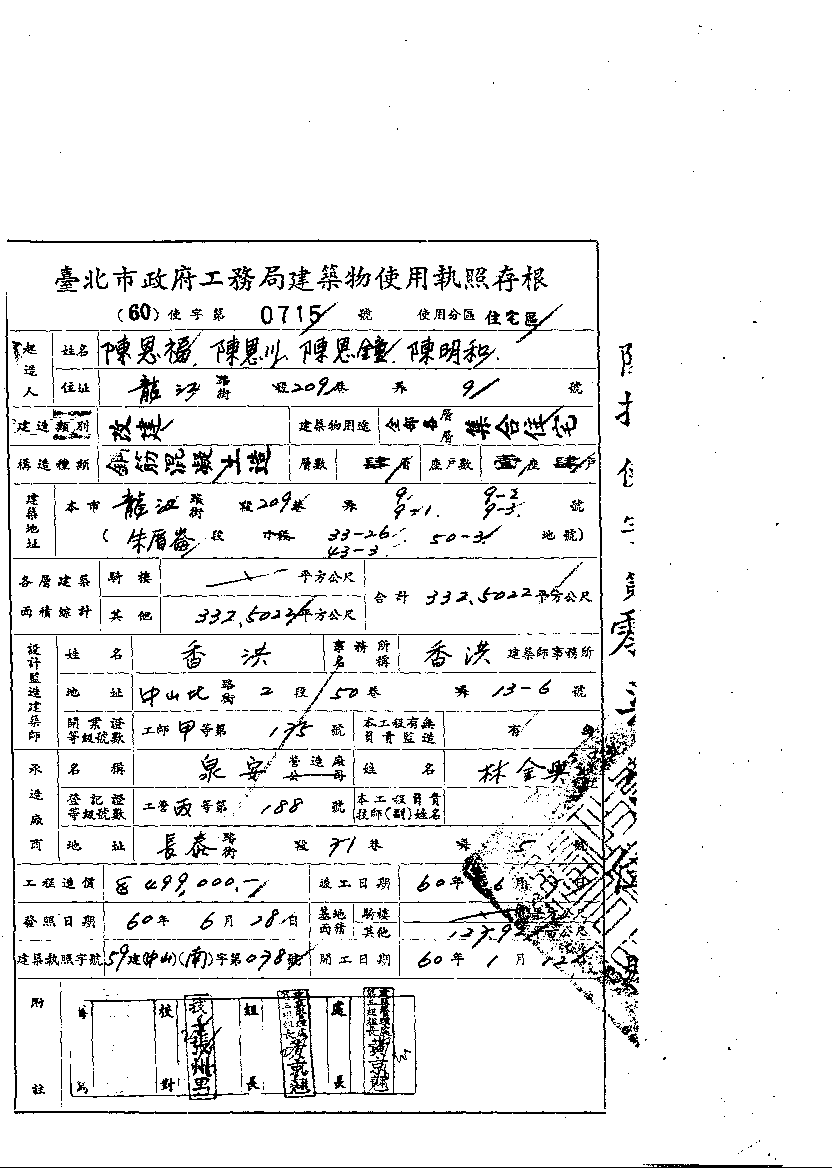 臺北市政府工務局建築物使用執照存根
(60)使字第 0715 號 使用分區 住宅區
起造人 姓名 陳恩福、陳恩川、陳恩鐘、陳明和
住址 龍江 路街 段 209 巷 弄 9 號
建造類別 改建 建築物用途 全部各層層 集合住宅
構造種類 鋼筋混凝土造 層數 肆層 座戶數 壹座 肆戶
建築地址 本市 龍江 路街 段 209 巷 弄 9. 9-1. 9-2 9-3. 號
(朱厝崙 段 小段 33-26 43-3 50-3 地號)
各層建築面積綜計 騎樓 平方公尺 合計 332.5022 平方公尺
其他 332.5022 平方公尺
設計監造建築師 姓名 香洪 事務所名稱 香洪 建築師事務所
地址 中山北 路街 2 段 50 巷 弄 13-6 號
開業證等級號數 工師 甲 等第 175 號 本工程有無負責監造 有
承造廠商 名稱 泉安 營造廠公司 姓名 林金
登記證等級號數 工營 丙 等第 188 號 本工程負責技師(副)姓名
地址 長泰 路街 段 31 巷 5 號
工程造價 499,000.- 竣工日期 60年 6月 日
發照日期 60年 6月 28日 基地面積 騎樓
其他
建築執照字號 59建(中山)(南)字第038號 開工日期 60年 1月 12
附註 校對 組長 處長